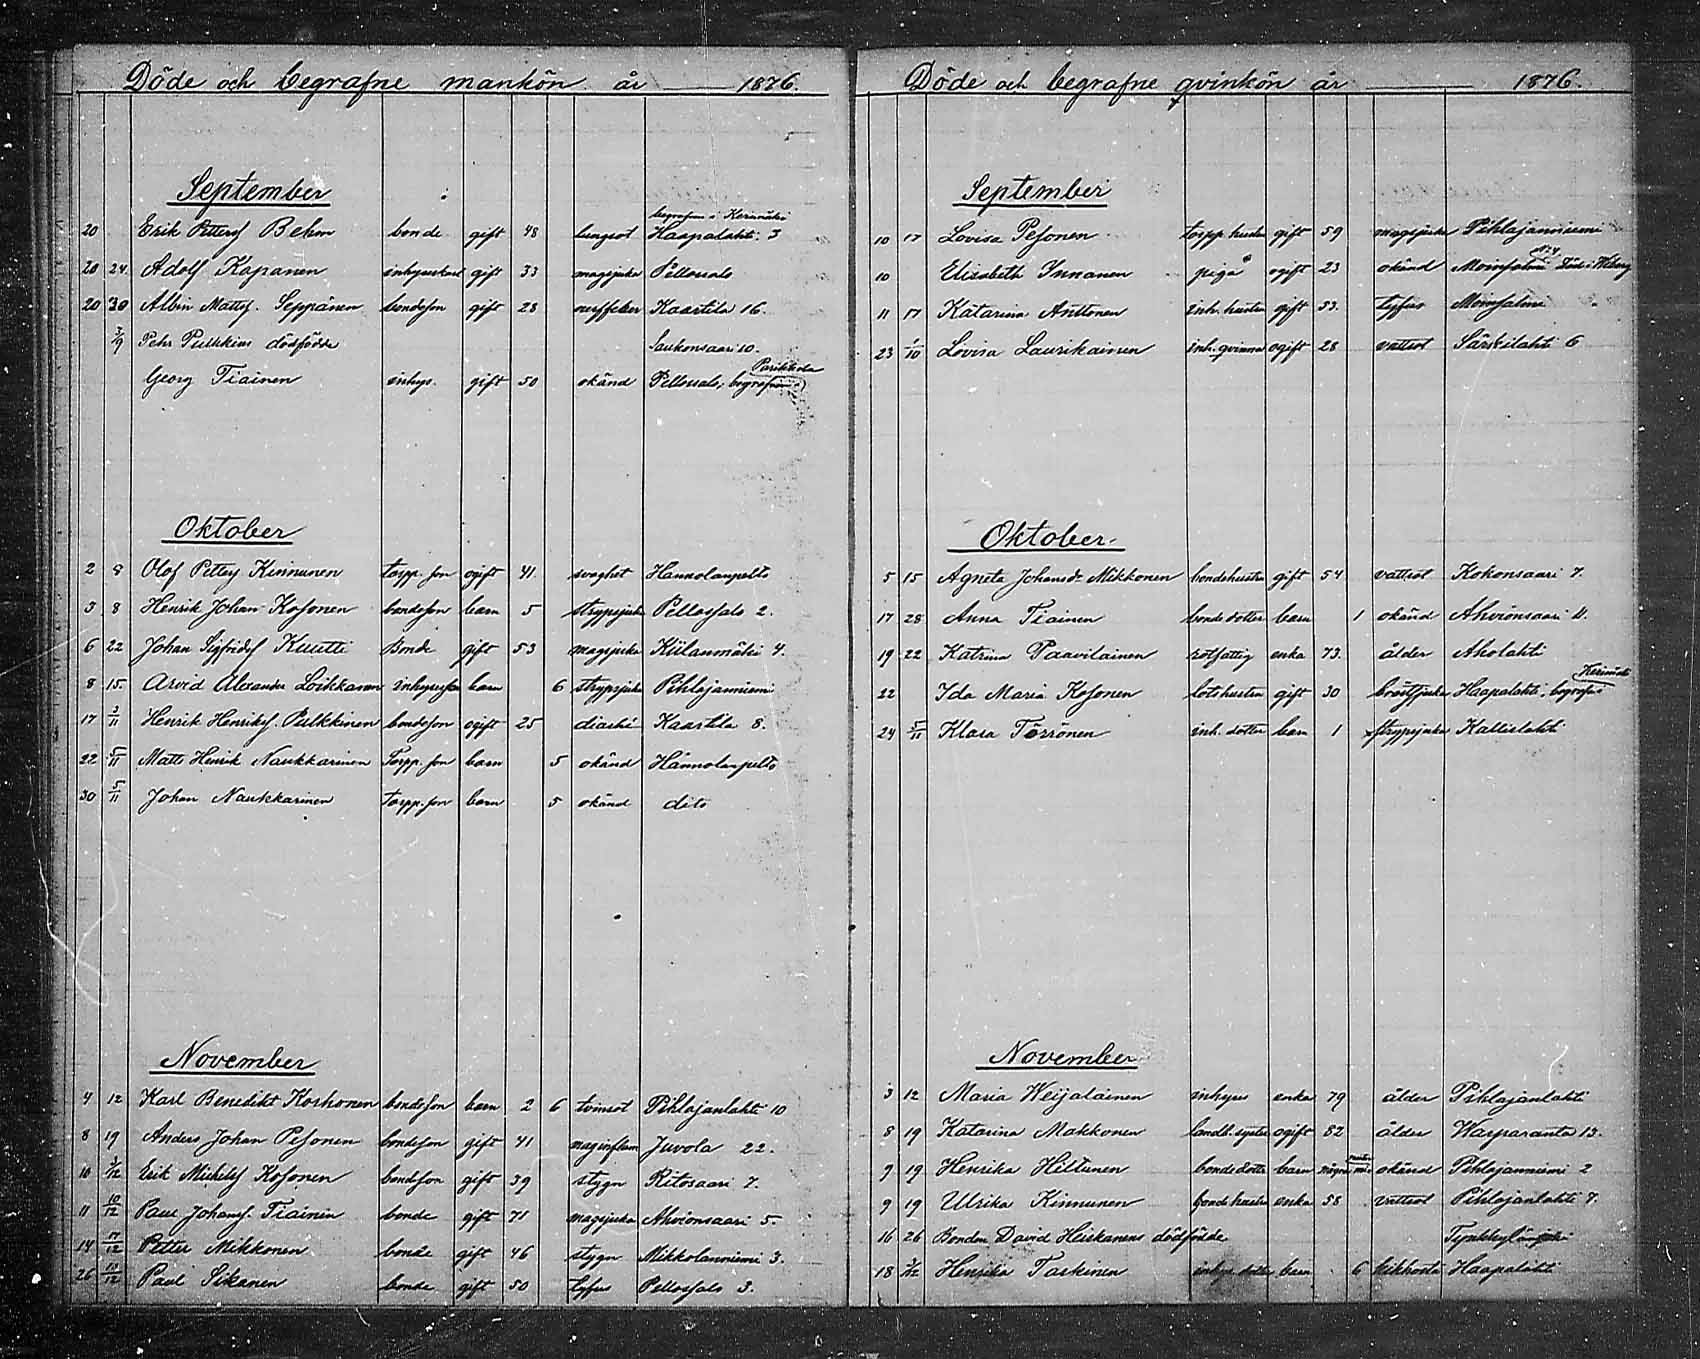 Döde och begrafne mankön år 1876.
September
begrafven i Kerimäki
20 Erik Petterss Behm bonde gift 48 lungsot Haapalahti 3
20 24. Adolf Kapanen inhyseskarl gift 33 magsjuka Pellossalo
20 30 Albin Mattss. Seppänen bondeson gift 28 nerffeber Kaartila 16.
3/9 Pehr Pulkkins dödfödde Laukonsaari 10.
Parikkala
Georg Tiainen inhys. gift 50 okänd Pellossalo, begrafven i
Oktober
2 8 Olof Petterss Kinnunen torpp. son ogift 41. svaghet Hannolanpelto
3 8 Henrik Johan Kosonen bondeson barn 5 strypsjuka Pellossalo 2.
6 22 Johan Sigfridss Kuutti Bonde gift 53 magsjuka Kiilanmäki 4.
8 15. Arvid Alexander Loikkanen inhysesson barn 6 strypsjuka Pihlajaniemi
17 3/11 Henrik Henrikss. Pulkkinen bondeson ogift 25 diarhé Kaartila 8.
22 5/11 Matts Henrik Naukkarinen Torpp. son barn 5 okänd Hannolanpelto
30 5/11 Johan Naukkarinen Torpp. son barn 5 okänd dito
November
4 12 Karl Benedikt Korhonen bondeson barn 2 6 tvinsot Pihlajanlahti 10
8 19 Anders Johan Pesonen bondeson gift 41 maginflam Juvola 22.
10 3/12 Erik Mickelss Kosonen bondeson gift 39 stygn Ritosaari 7.
11 10/12 Paul Johanss. Tiainen bonde gift 71 magsjuka Ahvionsaari 5.
14 17/12 Petter Mikkonen bonde gift 46 stygn Mikkolanniemi 3.
26 /12 Paul Sikanen bonde gift 50 tyfus Pellossalo 3.
Döde och begrafne qvinkön år 1876.
September
10 17 Lovisa Pesonen torpp hustru gift 59 magsjuka Pihlajanniemi
10 Elisabeth Innanen piga ogift 23 okänd Moinsalmi Död i Wiborg
11 17 Katarina Anttonen inh. hustru gift 53. tyfus Moinsalmi
23 1/10 Lovisa Laurikainen inh. qvinna ogift 28 vattsot Särkilahti 6
Oktober
5 15 Agneta Johansd. Mikkonen bondehustru gift 54 vattsot Kokonsaari 7.
17 28 Anna Tiainen bonde dotter barn 1 okänd Ahvionsaari 11.
19 22 Katrina Paavilainen rotfattig enka 73. ålder Aholahti
Kerimäki
22 Ida Maria Kosonen lotshustru gift 30 bröstsjuka Haapalahti, begrafven i
24 5/11 Klara Torrönen inh. dotter barn 1 strypsjuka Kallislahti
November
3 12 Maria Weijalainen inhyses enka 79 ålder Pihlajanlahti
8 19 Katarina Makkonen landb. syster ogift 82 ålder Warparanta 13.
9 19 Henrika Hiltunen bonde dotter barn några okänd Pihlajanniemi 2
9 19 Ulrika Kinnunen bonde hustru enka 58 vattsot Pihlajanlahti 7.
16 26 Bonden David Heiskanens dödfödde
18 3/12 Henrika Tarkinen inhys. dotter barn 6 kikhosta Haapalahti